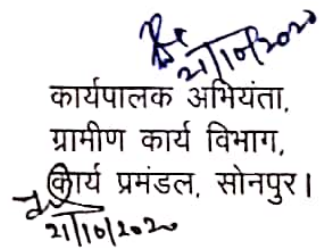 21/10/2020
कार्यपालक अभियंता,
ग्रामीण कार्य विभाग,
कार्य प्रमंडल, सोनपुर।
21/10/2020